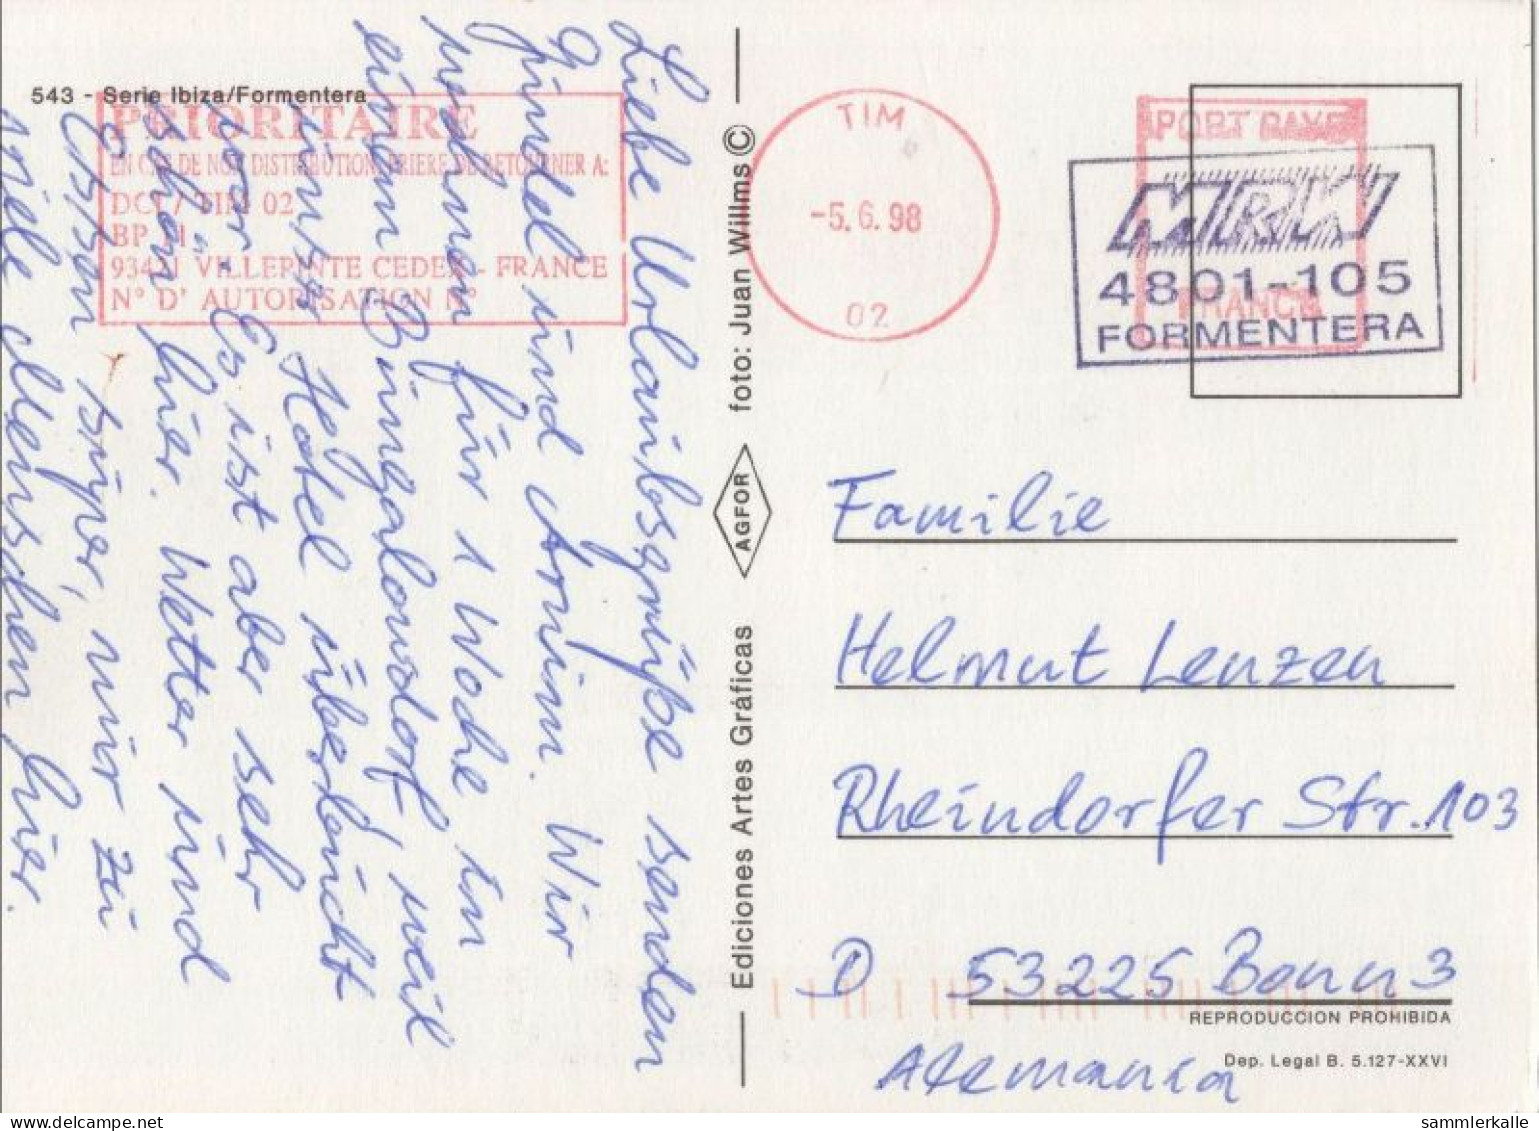 543 - Serie Ibiza/Formentera
PRIORITAIRE
EN CAS DE NON DISTRIBUTION, PRIERE DE RETOURNER A:
DCI / TIM 02
BP
93421 VILLEPINTE CEDEX - FRANCE
N° D' AUTORISATION N°
Liebe Urlaubsgrüße senden
Gündel und Armin. Wir
wohnen für 1 Woche im
einem Bungalowdorf, weil
unser Hotel überbucht
war. Es ist aber sehr
schön hier. Wetter und
Essen super, nur zu
viele Menschen hier.
foto: Juan Willms ©
AGFOR
Ediciones Artes Gráficas
TIM
-5.6.98
02
PORT PAYE
FRANCE
MRW
4801-105
FORMENTERA
Familie
Helmut Lenzen
Rheindorfer Str. 103
D 53225 Bonn 3
Alemania
REPRODUCCION PROHIBIDA
Dep. Legal B. 5.127-XXVI
sammlerkalle